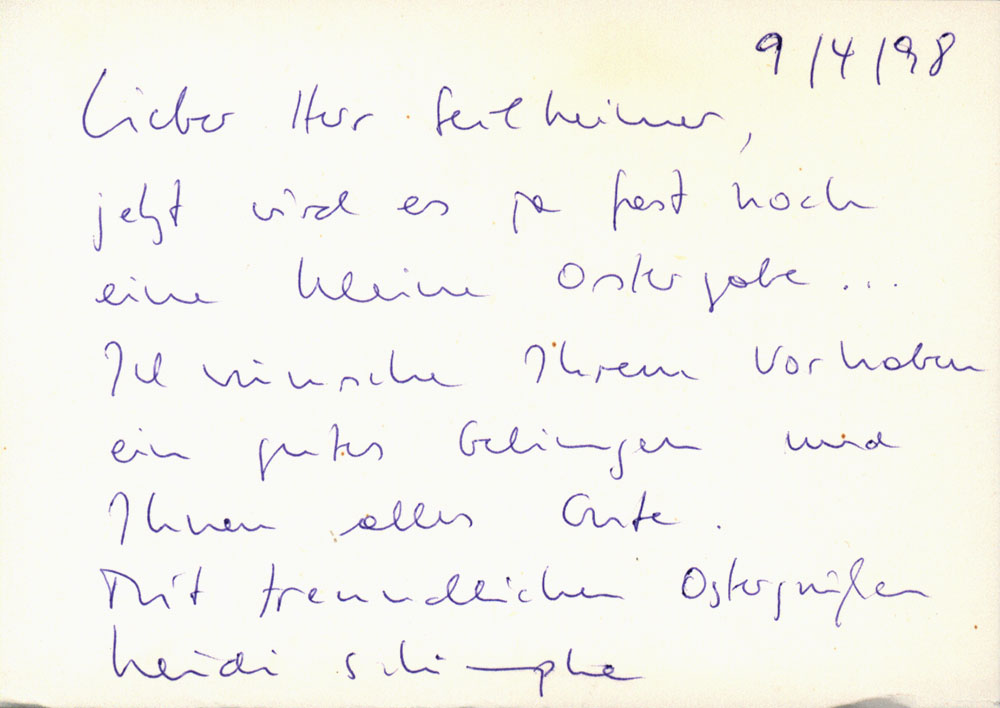 9/4/98
Lieber Herr Seilheimer,
jetzt wird es ja fast noch
eine kleine Ostergabe...
Ich wünsche Ihrem Vorhaben
ein gutes Gelingen und
Ihnen alles Gute.
Mit freundlichen Ostergrüßen
heidi